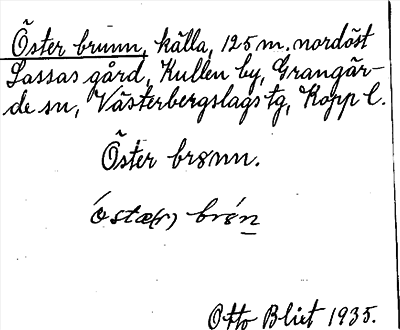 Öster brunn, källa, 125 m. nordöst
Lassas gård, Kullen by, Grangär-
de sn, Västerbergslags tg, Kopp l.
Öster brɷnn.
óstæ(r) brɷ́n
Otto Blixt 1935.